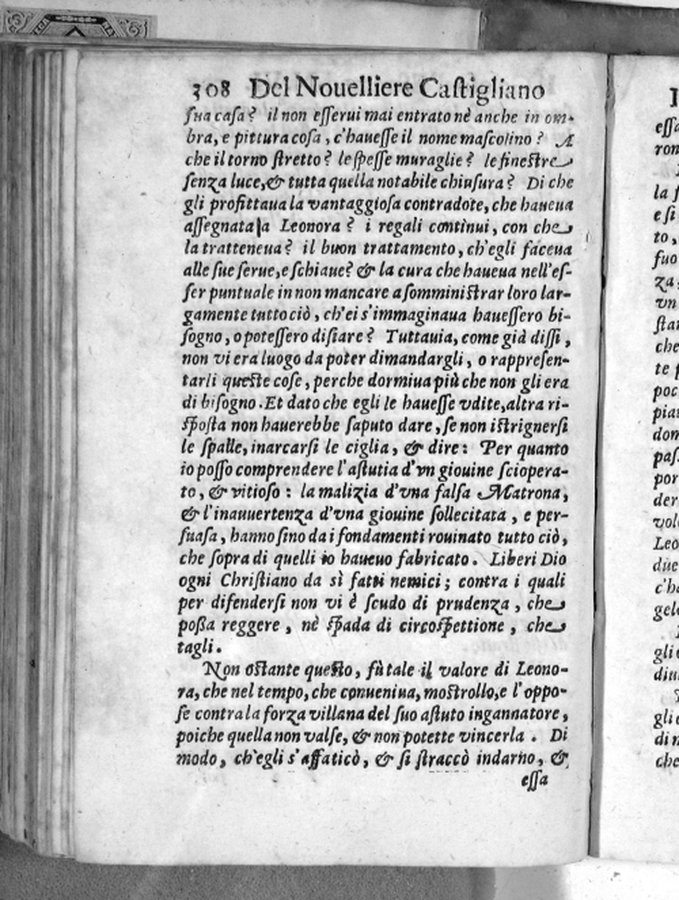 308 Del Nouelliere Castigliano
sua casa? il non esserui mai entrato nè anche in om-
bra, e pittura cosa, c'hauesse il nome mascolino? A
che il torno stretto? le spesse muraglie? le finestre
senza luce, & tutta quella notabile chiusura? Di che
gli profittaua la vantaggiosa contradote, che haueua
assegnata a Leonora? i regali continui, con che
la tratteneua? il buon trattamento, ch'egli faceua
alle sue serue, e schiaue? & la cura che haueua nell'es-
ser puntuale in non mancare a somministrar loro lar-
gamente tutto ciò, ch'ei s'immaginaua hauessero bi-
sogno, o potessero disiare? Tuttauia, come già dissi,
non vi era luogo da poter dimandargli, o rappresen-
tarli queste cose, perche dormiua più che non gli era
di bisogno. Et dato che egli le hauesse vdite, altra ri-
sposta non hauerebbe saputo dare, se non istrignersi
le spalle, inarcarsi le ciglia, & dire: Per quanto
io posso comprendere l'astutia d'vn giouine sciopera-
to, & vitioso: la malizia d'vna falsa Matrona,
& l'inauuertenza d'vna giouine sollecitata, e per-
suasa, hanno sino da i fondamenti rouinato tutto ciò,
che sopra di quelli io haueuo fabricato. Liberi Dio
ogni Christiano da sì fatti nemici; contra i quali
per difendersi non vi è scudo di prudenza, che
possa reggere, nè spada di circospettione, che
tagli.
Non ostante questo, fù tale il valore di Leono-
ra, che nel tempo, che conueniua, mostrollo, e l'oppo-
se contra la forza villana del suo astuto ingannatore,
poiche quella non valse, & non potette vincerla. Di
modo, ch'egli s'affaticò, & si straccò indarno, &
essa